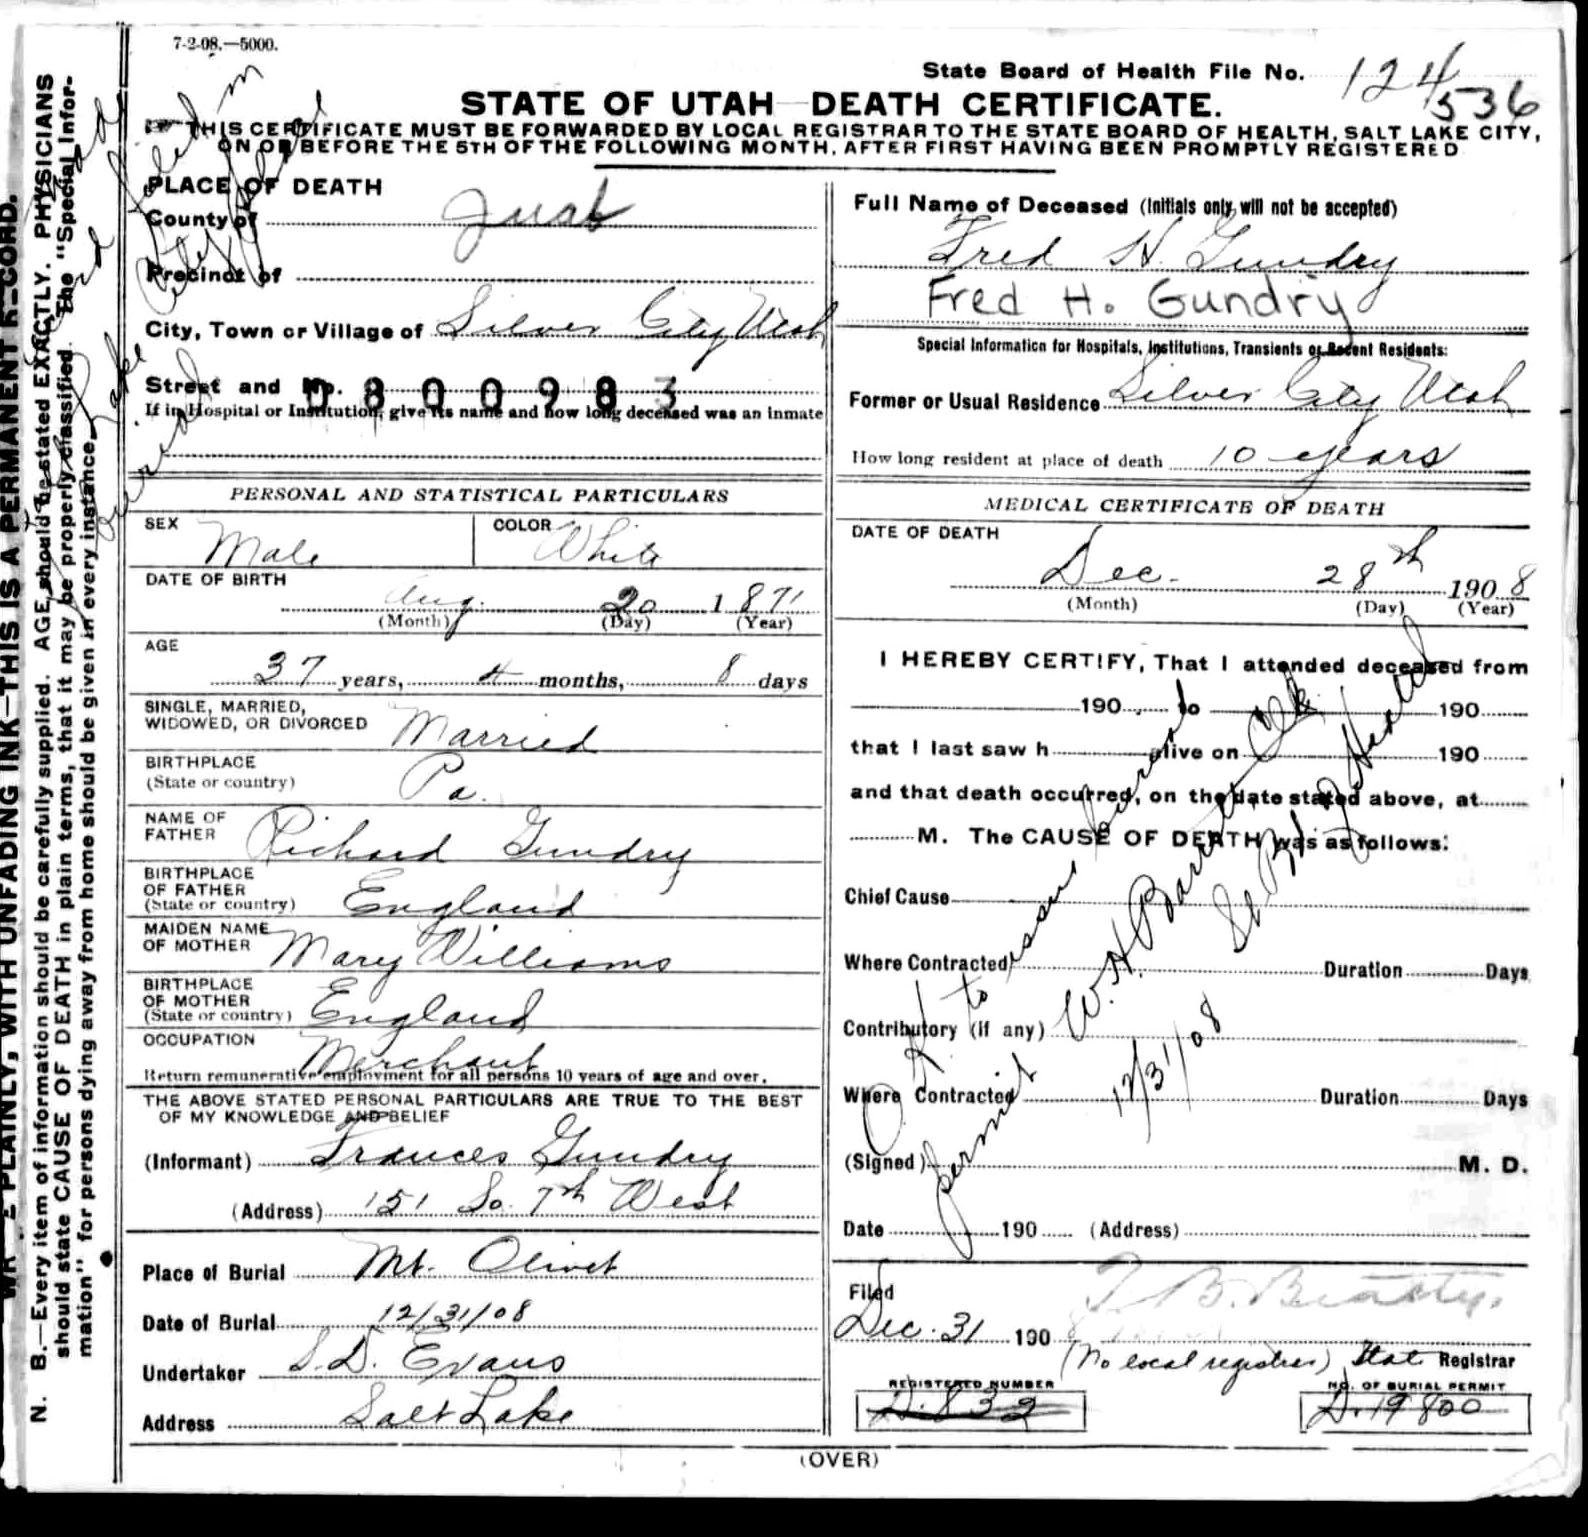 7-2-08.—5000.
State Board of Health File No. 124
536
STATE OF UTAH—DEATH CERTIFICATE.
THIS CERTIFICATE MUST BE FORWARDED BY LOCAL REGISTRAR TO THE STATE BOARD OF HEALTH, SALT LAKE CITY,
ON OR BEFORE THE 5TH OF THE FOLLOWING MONTH, AFTER FIRST HAVING BEEN PROMPTLY REGISTERED
PLACE OF DEATH
County of Juab
Precinct of
City, Town or Village of Silver City Utah
Street and No.
0800983
If in Hospital or Institution, give its name and how long deceased was an inmate
Full Name of Deceased (Initials only will not be accepted)
Fred H. Gundry
Fred H. Gundry
Special Information for Hospitals, Institutions, Transients or Recent Residents:
Former or Usual Residence Silver City Utah
How long resident at place of death 10 years
PERSONAL AND STATISTICAL PARTICULARS
SEX Male
COLOR White
DATE OF BIRTH
Aug. 20 1871
(Month) (Day) (Year)
AGE
37 years, 4 months, 8 days
SINGLE, MARRIED,
WIDOWED, OR DIVORCED Married
BIRTHPLACE
(State or country) Pa.
NAME OF
FATHER Richard Gundry
BIRTHPLACE
OF FATHER
(State or country) England
MAIDEN NAME
OF MOTHER Mary Williams
BIRTHPLACE
OF MOTHER
(State or country) England
OCCUPATION
Merchant
Return remunerative employment for all persons 10 years of age and over.
THE ABOVE STATED PERSONAL PARTICULARS ARE TRUE TO THE BEST
OF MY KNOWLEDGE AND BELIEF
(Informant) Frances Gundry
(Address) 151 So. 7th West
Place of Burial Mt. Olivet
Date of Burial 12/31/08
Undertaker S. D. Evans
Address Salt Lake
MEDICAL CERTIFICATE OF DEATH
DATE OF DEATH
Dec. 28th 1908
(Month) (Day) (Year)
I HEREBY CERTIFY, That I attended deceased from
190 to 190
that I last saw h alive on 190
and that death occurred, on the date stated above, at
M. The CAUSE OF DEATH was as follows:
Chief Cause
Where Contracted Duration Days
Contributory (if any)
Where Contracted Duration Days
(Signed) M. D.
Date 190 (Address)
O K to issue burial
permit
W. H. Barrett Clk
St Bd of Health
12/31/08
Filed
Dec. 31 1908 T. B. Beatty.
(No local registrar) State Registrar
REGISTERED NUMBER
D. 832
NO. OF BURIAL PERMIT
D. 19800
(OVER)
PLAINLY, WITH UNFADING INK—THIS IS A PERMANENT RECORD.
N. B.—Every item of information should be carefully supplied. AGE should be stated EXACTLY. PHYSICIANS
should state CAUSE OF DEATH in plain terms, that it may be properly classified. The "Special Infor-
mation" for persons dying away from home should be given in every instance.